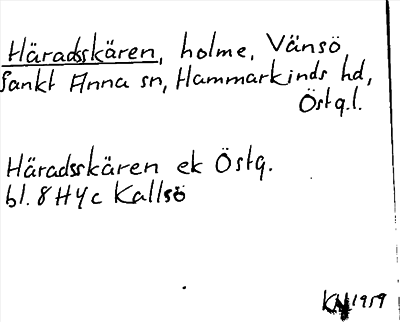 Häradsskären, holme, Vänsö
Sankt Anna sn, Hammarkinds hd,
Östg.l.
Häradsskären ek Östg.
bl. 8 H4c Kallsö
1959